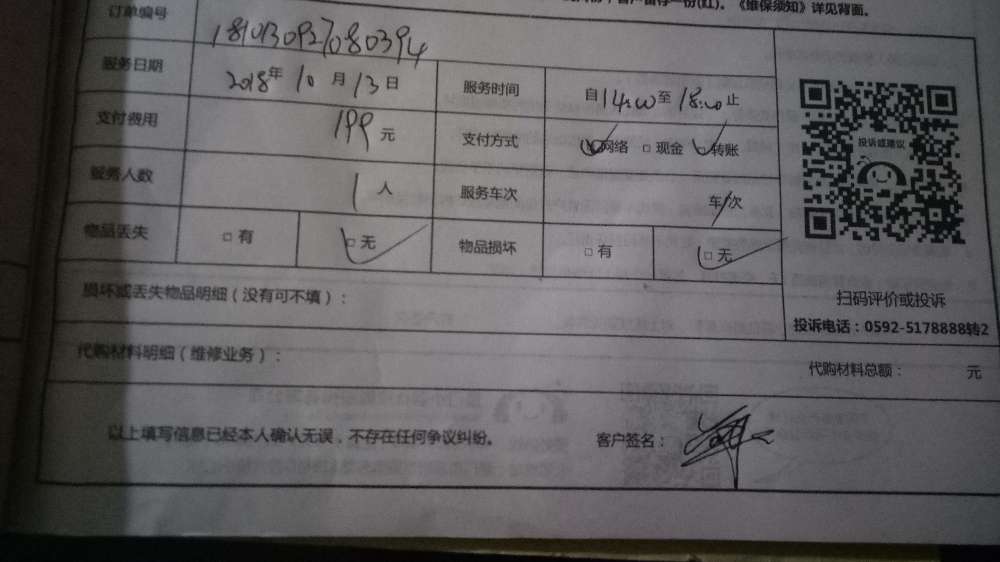 《维保须知》详见背面。
订单编号 18101309327080394
服务日期 2018年 10 月 13 日 服务时间 自 14:00 至 18:00 止
支付费用 199 元 支付方式 网络 □ 现金 □ 转账
服务人数 1 人 服务车次 车/次
物品丢失 □ 有 □ 无 物品损坏 □ 有 □ 无
投诉或建议
损坏或丢失物品明细（没有可不填）：
扫码评价或投诉
投诉电话：0592-5178888转2
代购材料明细（维修业务）： 代购材料总额： 元
以上填写信息已经本人确认无误，不存在任何争议纠纷。 客户签名：